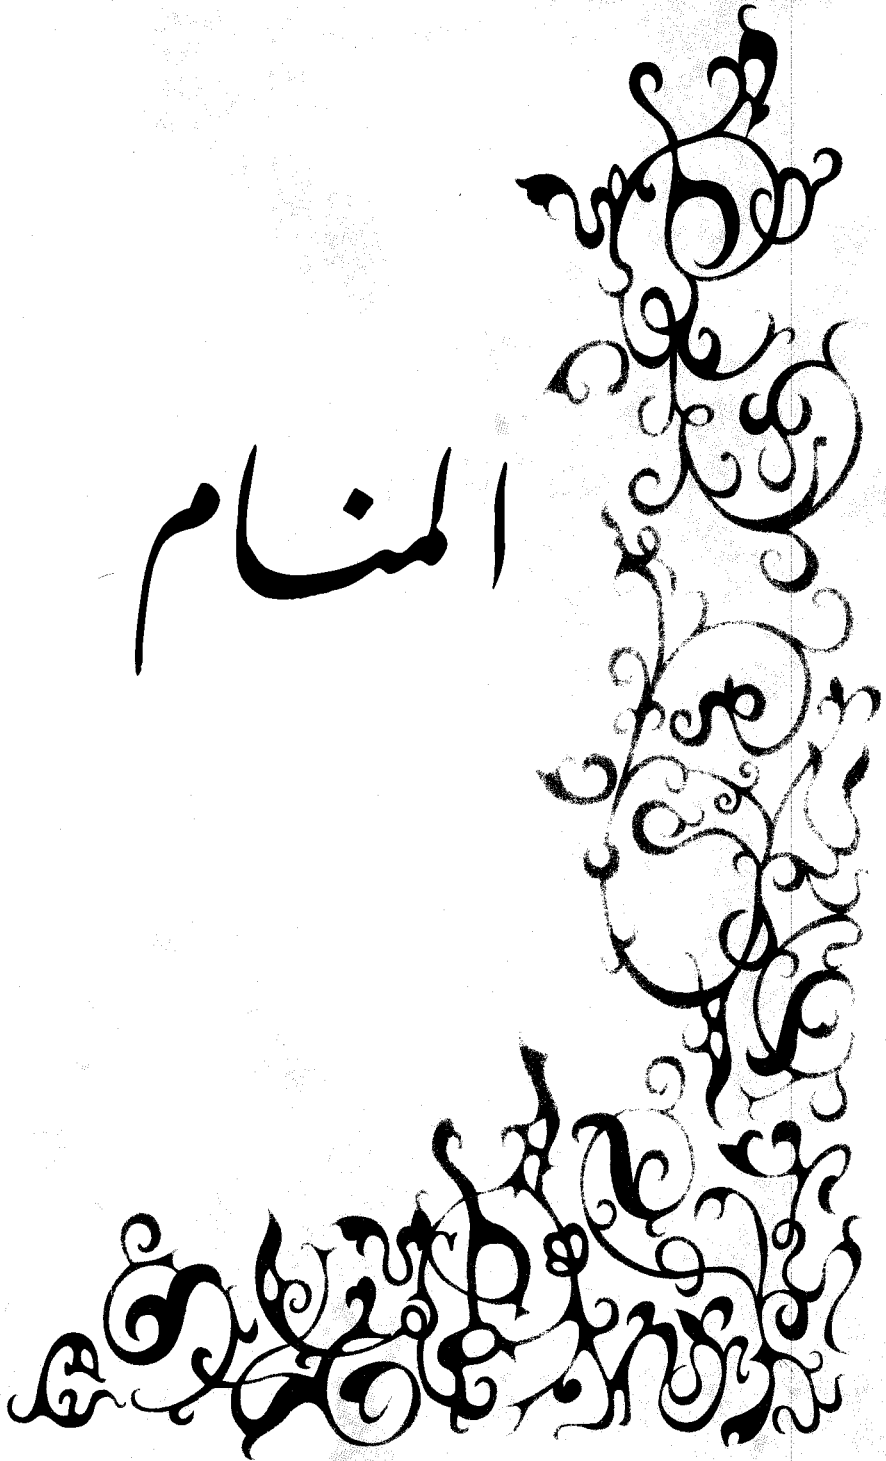 المنام